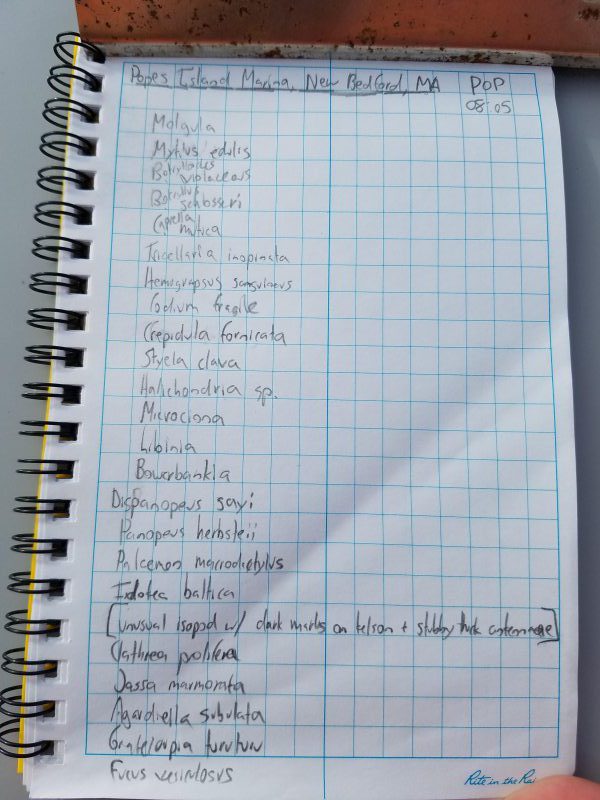 Popes Island Marina, New Bedford, MA POP
08:05
Molgula
Mytilus edulis
Botrylloides violaceous
Botryllus schlosseri
Caprella mutica
Tricellaria inopinata
Hemigrapsus sanguineus
Codium fragile
Crepidula fornicata
Styela clava
Halichondria sp.
Microciona
Libinia
Bowerbankia
Dispanopeus sayi
Panopeus herbsteii
Palaemon macrodactylus
Idotea baltica
[unusual isopod w/ dark marks on telson + stubby thick antennae]
Clathrea prolifera
Jassa marmorata
Agardiella subulata
Grateloupia turuturu
Fucus vesiculosus
Rite in the Rai